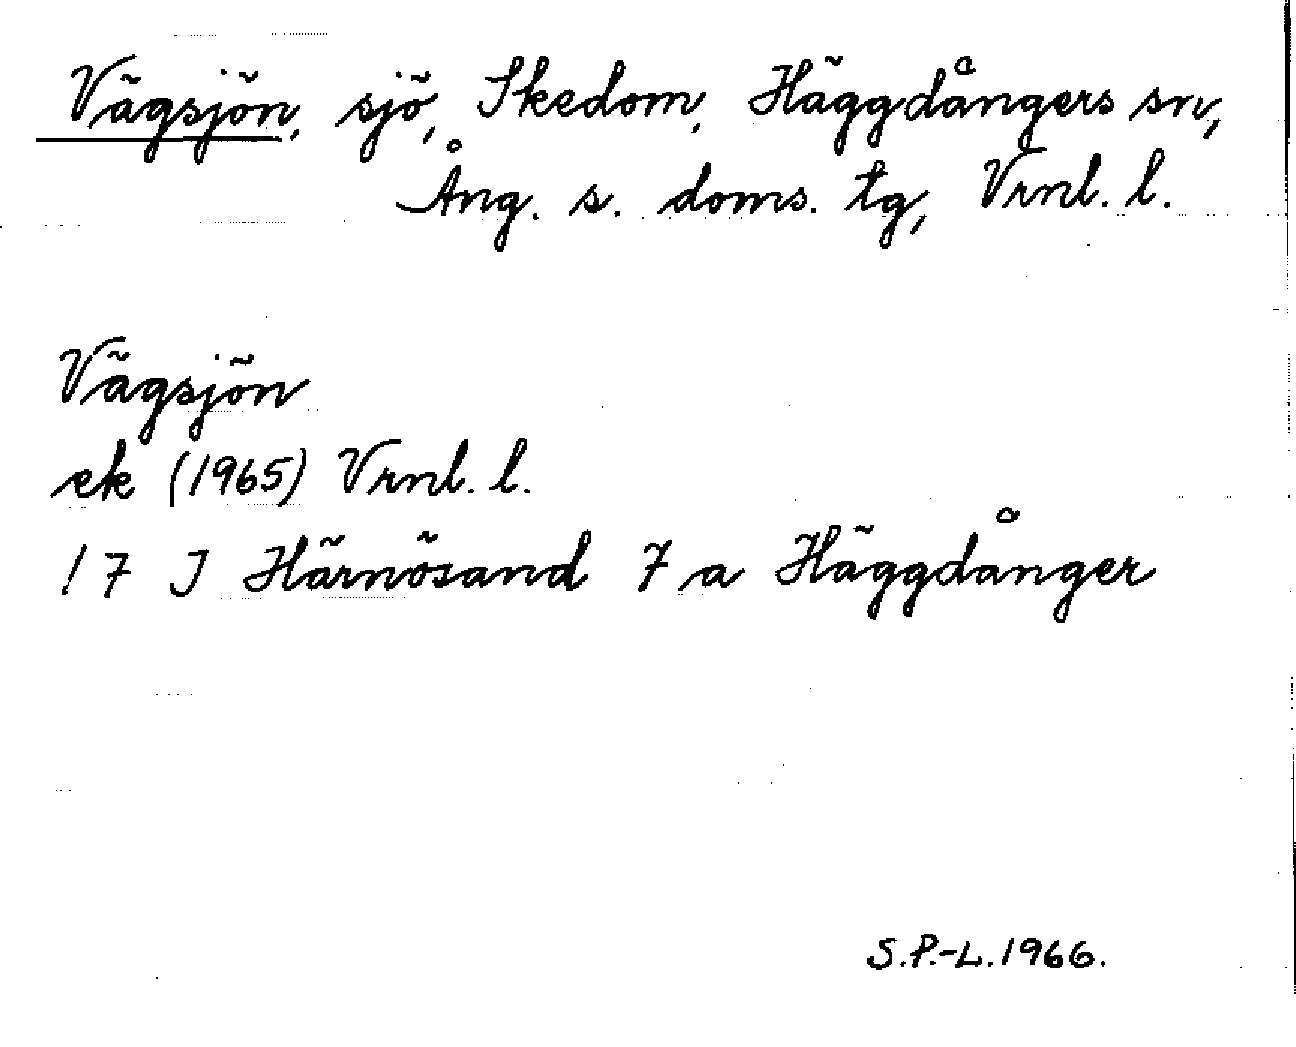 Vägsjön, sjö, Skedom, Häggdångers sn,
Ång. s. doms. tg, Vrnl. l.
Vägsjön
ek (1965) Vrnl. l.
17 J Härnösand 7 a Häggdånger
S.P.-L. 1966.